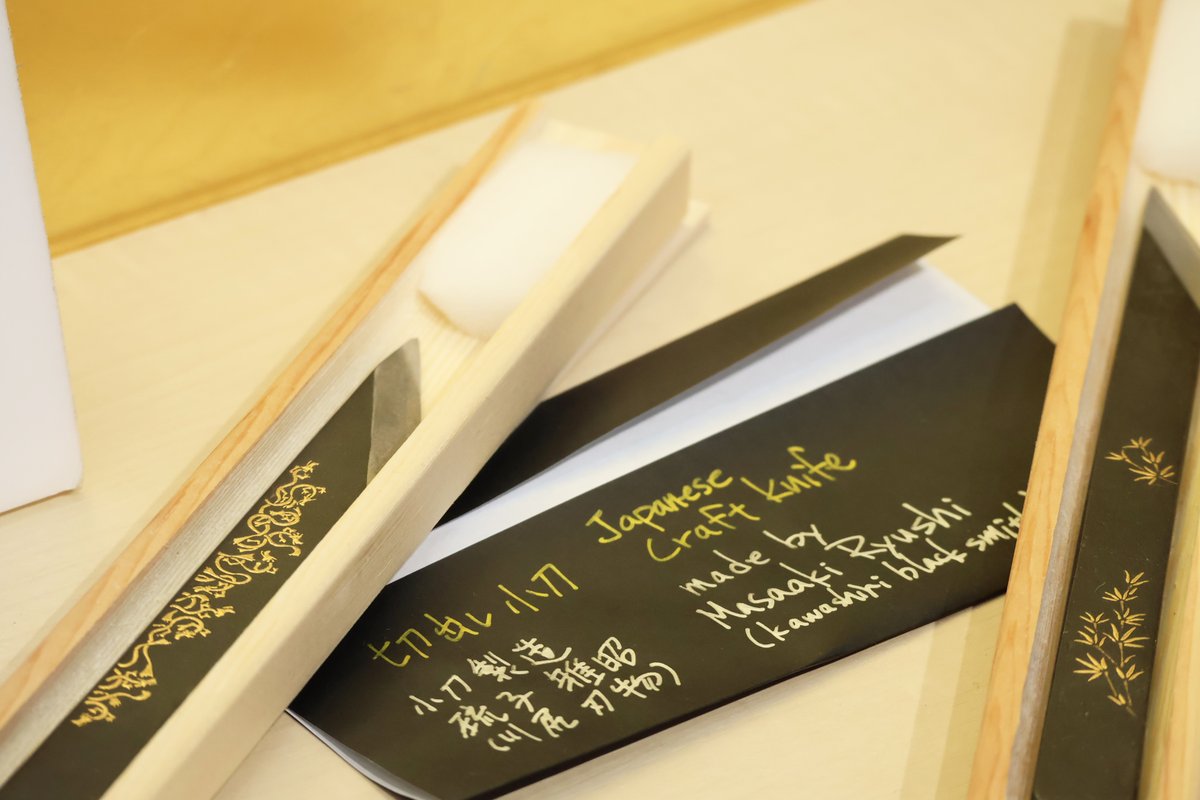 切出し小刀
小刀製造
琉子雅昭
(川尻刃物)
Japanese
craft knife
made by
Masaaki Ryushi
(kawashiri black smith